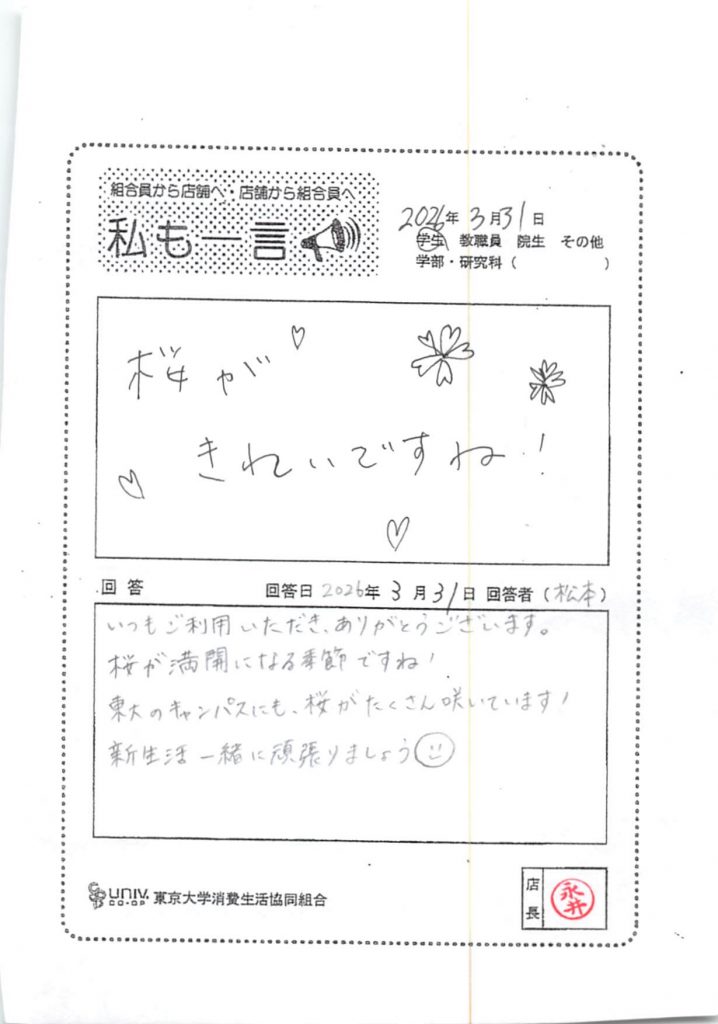 組合員から店舗へ・店舗から組合員へ
私も一言
2026年 3月31日
学生 教職員 院生 その他
学部・研究科( )
桜が
きれいですね!
回答 回答日 2026年 3月 31日 回答者(松本)
いつもご利用いただき、ありがとうございます。
桜が満開になる季節ですね!
東大のキャンパスにも、桜がたくさん咲いています!
新生活一緒に頑張りましょう
UNIV. CO-OP 東京大学消費生活協同組合
店長 永井